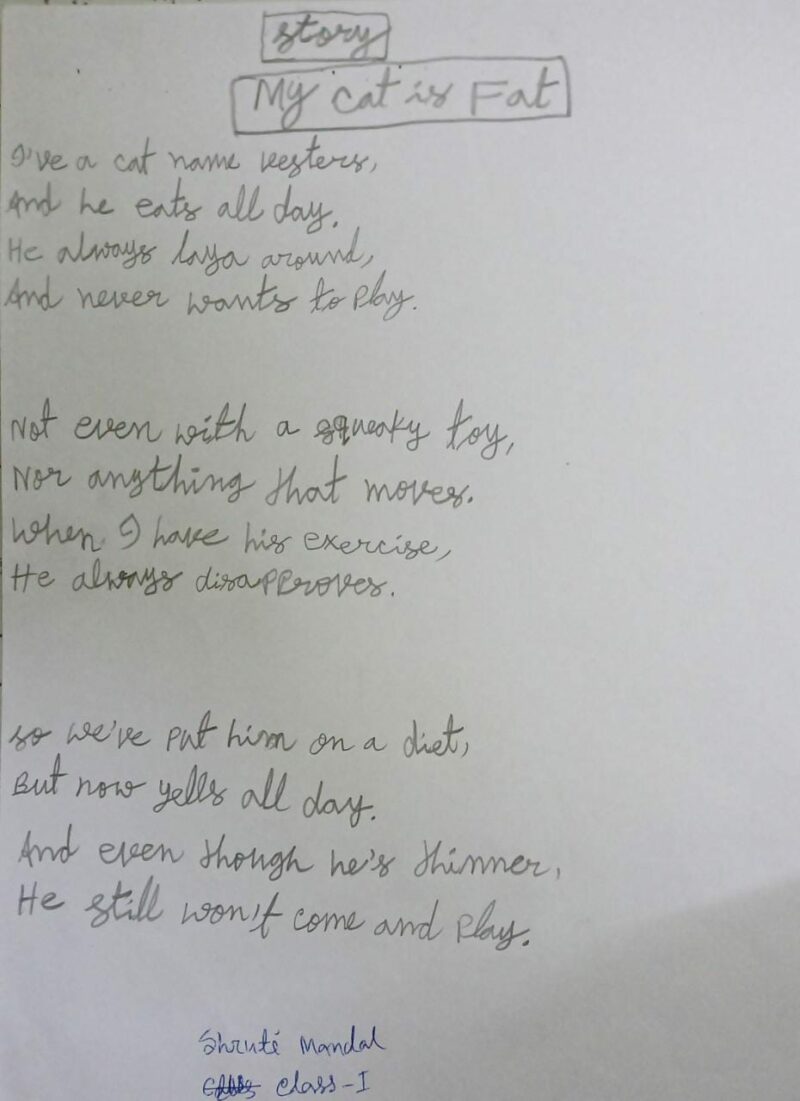 story
My cat is Fat
I've a cat name vesters,
And he eats all day.
He always laya around,
And never wants to Play.
Not even with a squeaky toy,
Nor anything that moves.
When I have his exercise,
He always disapproves.
so we've put him on a diet,
But now yells all day.
And even though he's thinner,
He still won't come and Play.
Shruti Mandal
class-I